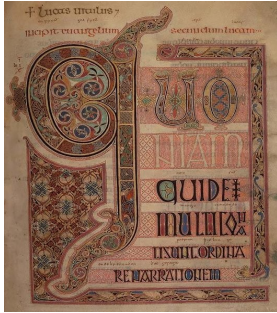 + Lucas vitulus
incipit euangelium secundum lucam
QUO
NIAM
QUIDE
MULTICO
NATISUNT ORDINA
RENARRATIONEM